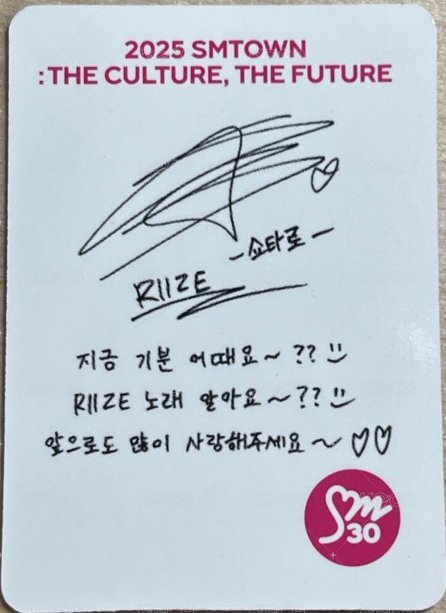 2025 SMTOWN
: THE CULTURE, THE FUTURE
-쇼타로-
RIIZE
지금 기분 어때요~ ??
RIIZE 노래 알아요~??
앞으로도 많이 사랑해주세요~ ♡♡
Sm
30